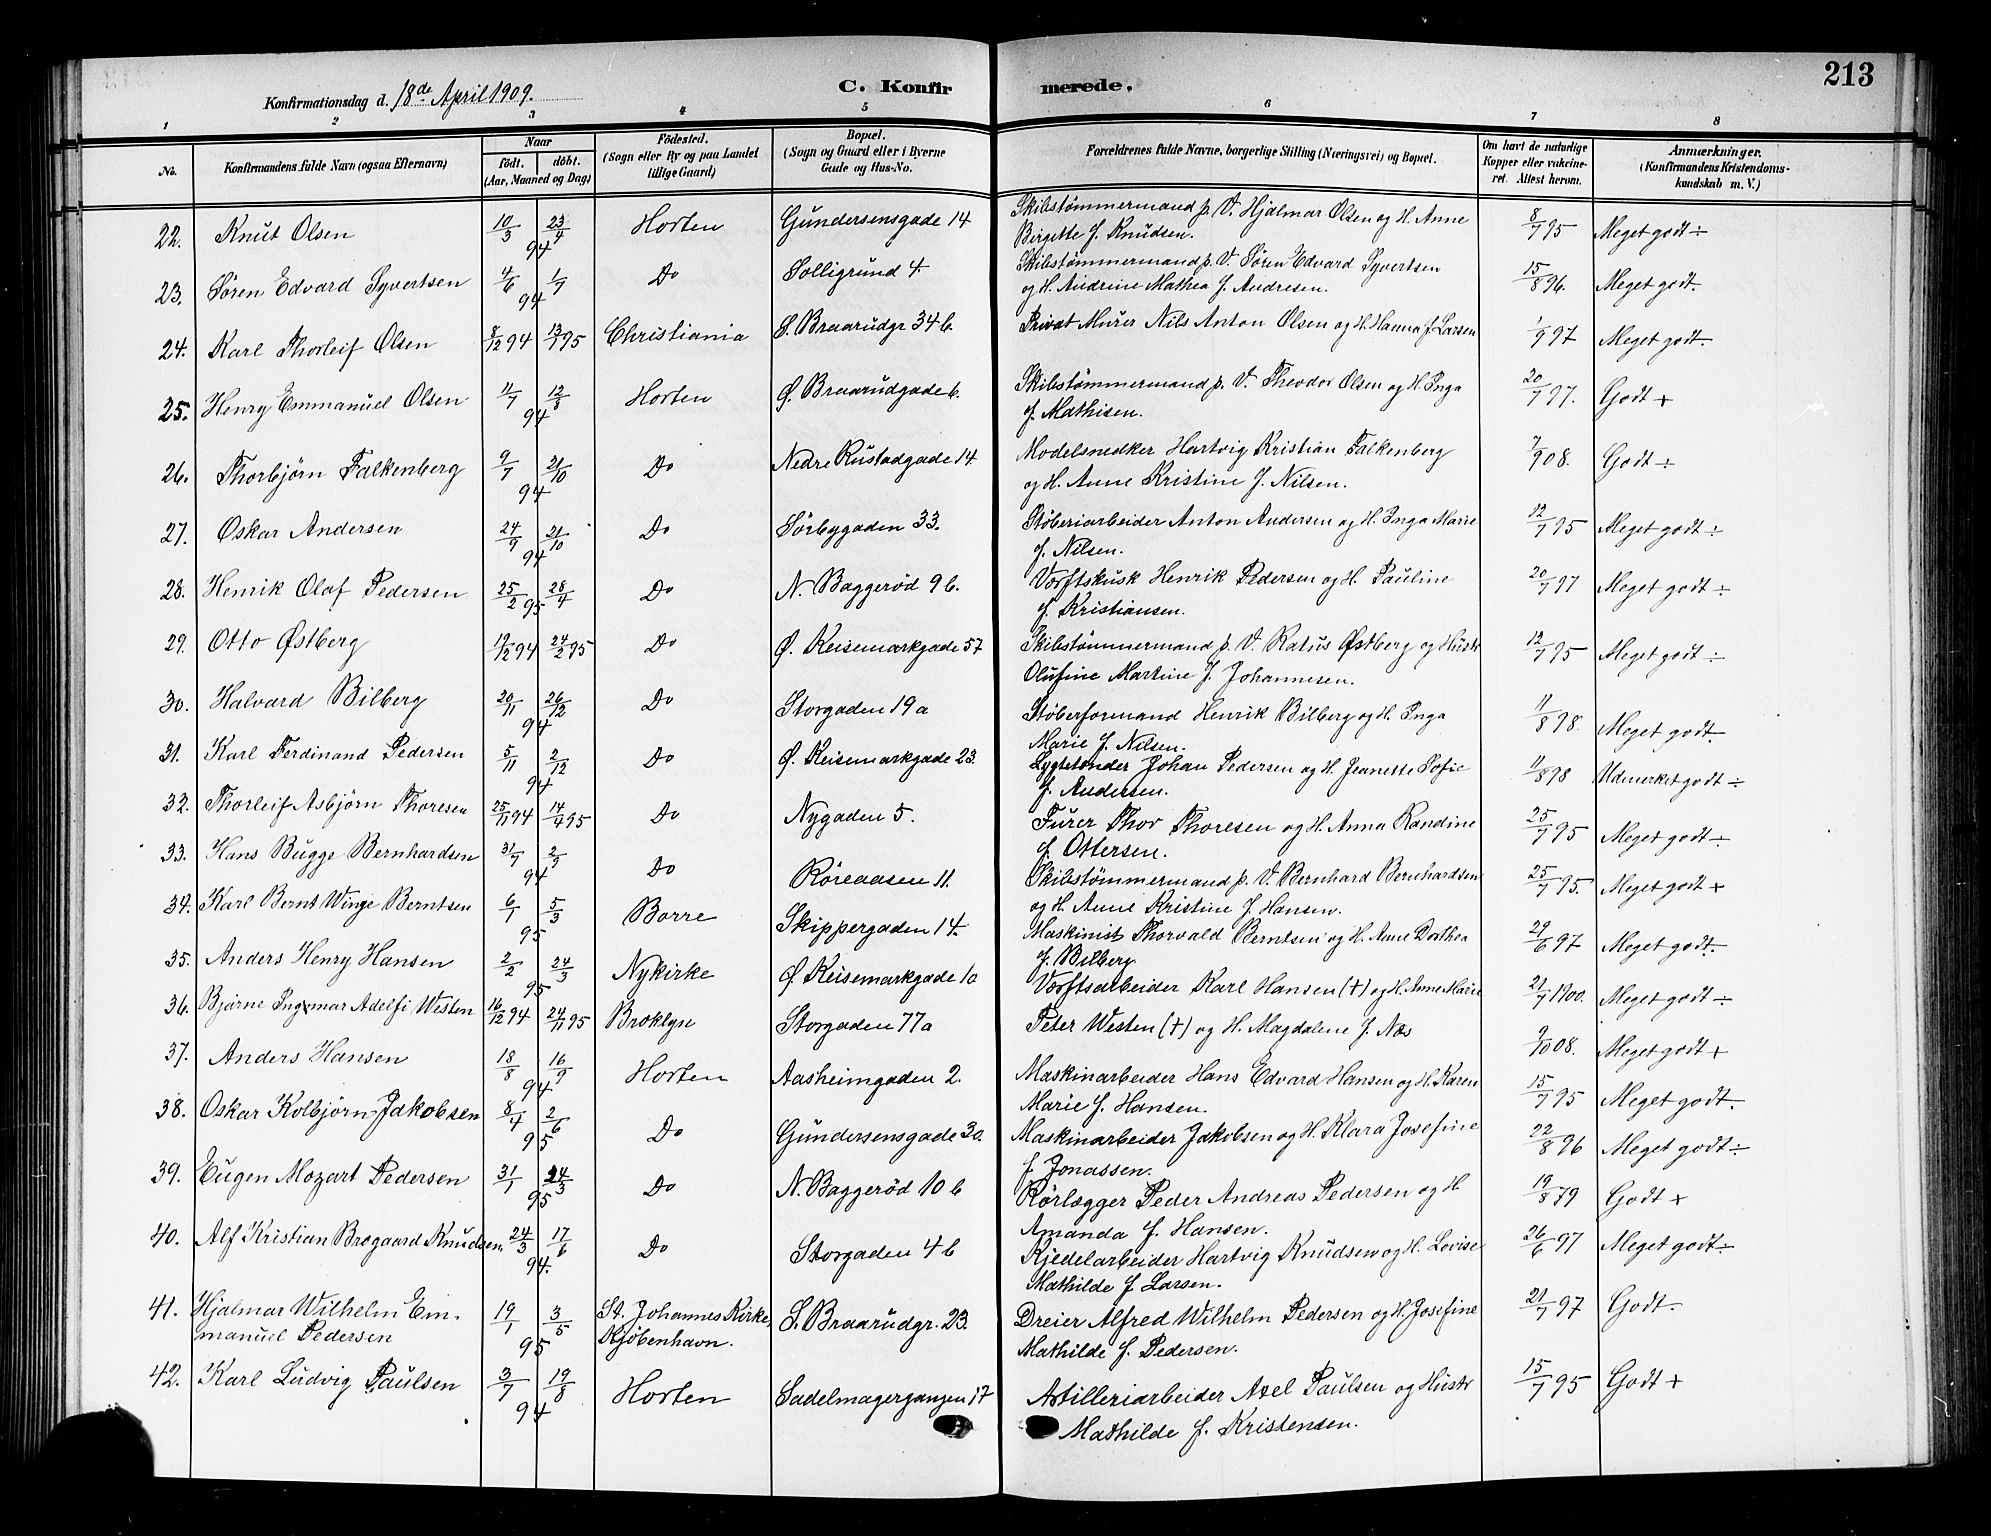 213
Konfirmationsdag d. 18de April 1909.
C. Konfirmerede.
1 2 3 4 5 6 7 8
No.
Konfirmandens fulde Navn (ogsaa Efternavn)
Naar
födt. döbt.
(Aar, Maaned og Dag)
Födested.
(Sogn eller By og paa Landet
tillige Gaard)
Bopæl.
(Sogn og Gaard eller i Byerne
Gade og Hus-No.
Forældrenes fulde Navne, borgerlige Stilling (Næringsvei) og Bopæl.
Om havt de naturlige
Kopper eller vakcine-
ret. Attest herom.
Anmærkninger.
(Konfirmandens Kristendoms-
kundskab m. V.)
22. Knut Olsen 10/3 23/4 94 Horten Gundersensgade 14 Skibstømmermand p. V. Hjalmar Olsen og H. Anne
Birgitte f. Knudsen. 8/7 95 Meget godt ÷
23. Søren Edvard Syvertsen 4/6 1/7 94 Do Solligrund 4. Skibstømmermand p. V. Søren Edvard Syvertsen
og H. Andrine Mathea f. Andresen. 15/8 96. Meget godt.
24. Karl Thorleif Olsen 8/12 94 13/1 95 Christiania S. Braarudgr 34 b. Privat Murer Nils Anton Olsen og H. Hanna f. Larsen 1/9 97 Meget godt.
25. Henry Emmanuel Olsen 11/7 12/8 94 Horten Ø. Braarudgade 6. Skibstømmermand p. V. Theodor Olsen og H. Inga
f. Mathisen. 20/7 97. Godt +
26. Thorbjørn Falkenberg 9/7 21/10 94 Do Nedre Rustadgade 14. Modelsnedker Hartvig Kristian Falkenberg
og H. Anne Kristine f. Nilsen. 7/9 08. Godt ÷
27. Oskar Andersen 24/9 21/10 94 Do Sørbygaden 33. Støberiarbeider Anton Andersen og H. Inga Marie
f. Nilsen. 12/7 95 Meget godt ÷
28. Henrik Olaf Pedersen 25/2 28/4 95 Do N. Baggerød 9 b. Værftskusk Henrik Pedersen og H. Pauline
f. Kristiansen. 20/7 97 Meget godt ÷
29. Otto Østberg 19/12 94 24/2 95 Do Ø. Keisemarkgade 57 Skibstømmermand p. V. Ratus Østberg og Hustr
Olufine Martine f. Johannesen. 12/7 95 Meget godt ÷
30. Halvard Bilberg 20/11 26/12 94 Do Storgaden 19 a Støberformand Henrik Bilberg og H. Inga
Marie f. Nilsen. 11/8 98. Meget godt.
31. Karl Ferdinand Pedersen 5/11 2/12 94 Do Ø. Keisemarkgade 23. Lygtetænder Johan Pedersen og H. Jeanette Sofie
f. Andersen. 11/8 98 Udmærket godt ÷
32. Thorleif Asbjørn Thoresen 25/11 94 14/4 95 Do Nygaden 5. Furer Thor Thoresen og H. Anna Randine
f. Ottersen. 25/7 95 Meget godt ÷
33. Hans Bugge Bernhardsen 31/7 2/9 94 Do Røreaasen 11. Skibstømmermand p. V. Bernhard Bernhardsen
og H. Anne Kristine f. Hansen. 25/7 95. Meget godt +
34. Karl Bernt Winge Berntsen 6/1 5/3 95 Borre Skippergaden 14. Maskinist Thorvald Berntsen og H. Anne Dorthea
f. Bilberg 29/6 97 Meget godt.
35. Anders Henry Hansen 2/2 24/3 95 Nykirke Ø. Keisemarkgade 10 Værftsarbeider Karl Hansen (†) og H. Anne Marie 21/7 1900. Meget godt ÷
36. Bjarne Ingmar Adelfi Westen 16/12 94 24/11 95 Broklyn Storgaden 77 a Peter Westen (†) og H. Magdalene f. Næs 9/10 08. Meget godt +
37. Anders Hansen 18/8 16/9 94 Horten Aasheimgaden 2. Maskinarbeider Hans Edvard Hansen og H. Karen
Marie f. Hansen. 15/7 95 Meget godt.
38. Oskar Kolbjørn Jakobsen 8/4 2/6 95 Do Gundersensgade 30. Maskinarbeider Jakobsen og H. Klara Josefine
f. Jonassen. 22/8 96 Meget godt ÷
39. Eugen Mozart Pedersen 31/1 24/3 95 Do N. Baggerød 10 b Rørlægger Peder Andreas Pedersen og H
Amanda f. Hansen. 19/8 79 Godt +
40. Alf Kristian Brogaard Knudsen. 24/3 17/6 94. Do Storgaden 4 b Kjedelarbeider Hartvig Knudsen og H. Lovise
Mathilde f. Larsen. 26/6 97 Meget godt ÷
41. Hjalmar Wilhelm Em-
manuel Pedersen 19/1 3/5 95 St. Johannes Kirke,
Kjøbenhavn. S. Braarudgr. 23. Dreier Alfred Wilhelm Pedersen og H. Josefine
Mathilde f. Pedersen. 21/7 97 Godt.
42. Karl Ludvig Paulsen 3/7 19/8 94 Horten Sadelmagergangen 17 Artilleriarbeider Axel Paulsen og Hustr
Mathilde f. Kristensen. 15/7 95 Godt +